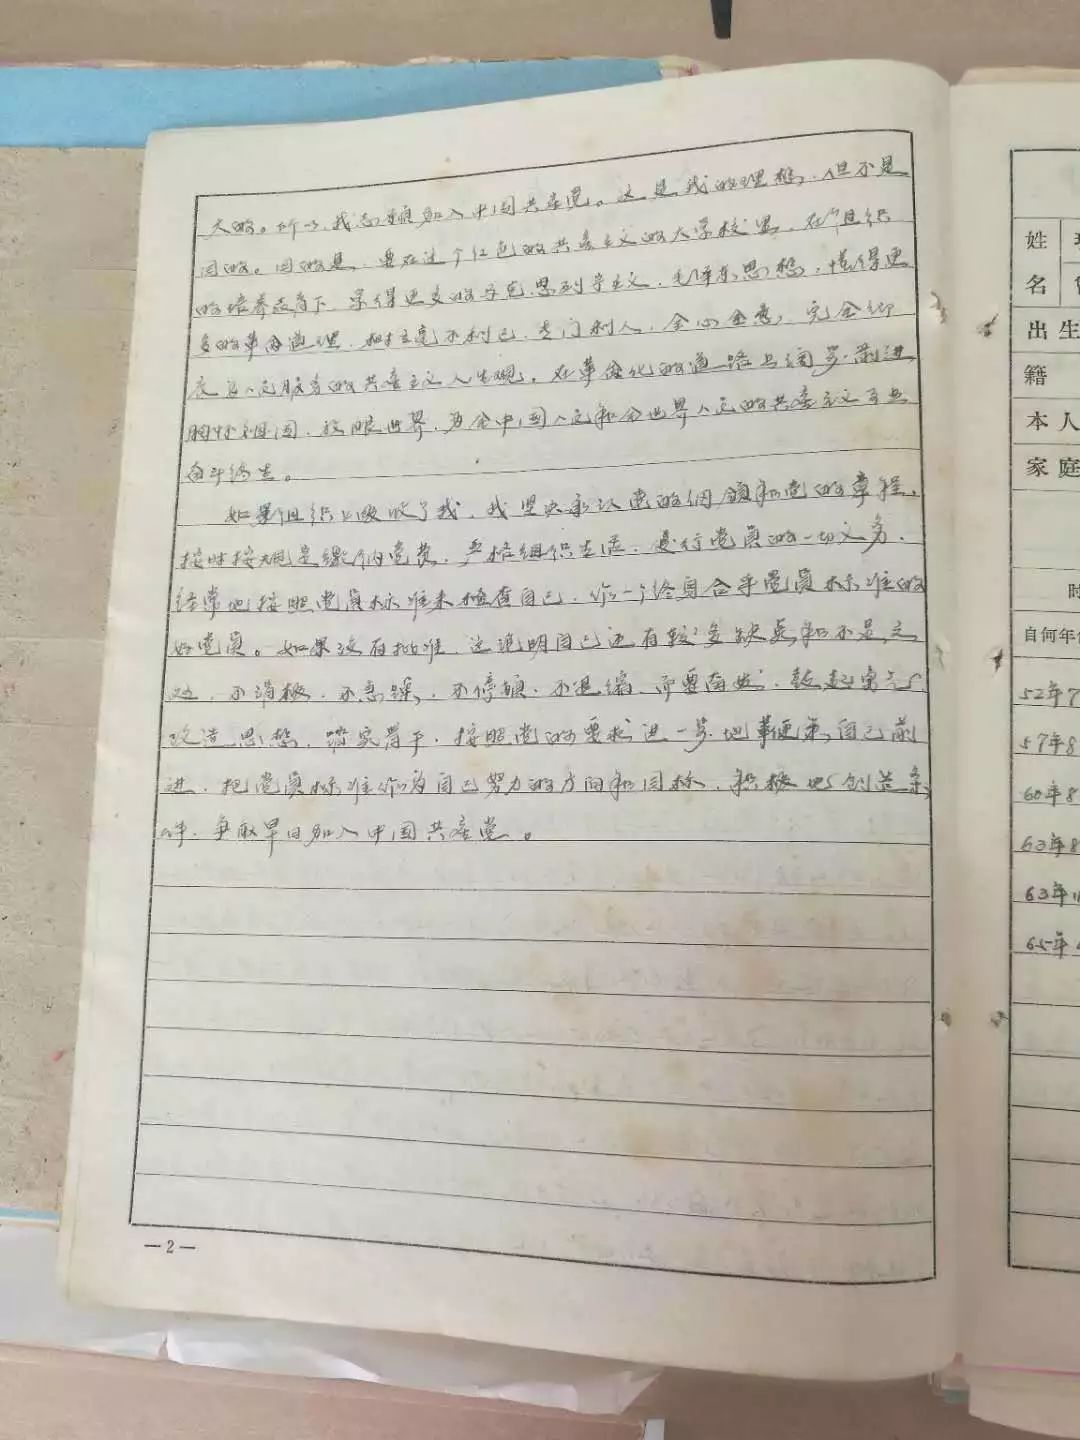 大的。所以,我志愿加入中国共产党。这是我的理想,但不是
目的。目的是,要在这个红色的共产主义的大学校里,在组织
的培养教育下,学得更多的马克思列宁主义,毛泽东思想,懂得更
多的革命道理,树立毫不利己,专门利人,全心全意,完全彻
底为人民服务的共产主义人生观,在革命化的道路上阔步前进,
胸怀祖国,放眼世界,为全中国人民和全世界人民的共产主义事业
奋斗终生。
如果组织上吸收了我,我坚决承认党的纲领和党的章程,
按时按规定缴纳党费,严格组织生活,履行党员的一切义务,
经常地按照党员标准来检查自己,作一个终身合乎党员标准的
好党员。如果没有批准,这说明自己还有较多缺点和不足之
处,不消极,不急躁,不停顿,不退缩,而要奋发,鼓起勇气
改造思想,踏实苦干,按照党的要求进一步地鞭策自己前
进,把党员标准作为自己努力的方向和目标,积极地创造条
件,争取早日加入中国共产党。
—2—
姓
名
出生
籍
本人
家庭
时
自何年
52年7
57年8
60年8
63年8
63年
65年